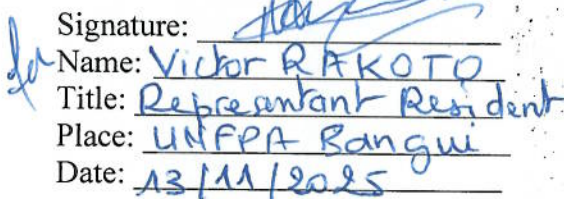 Signature:
Name: Victor RAKOTO
Title: Represantant Resident
Place: UNFPA Bangui
Date: 13/11/2025